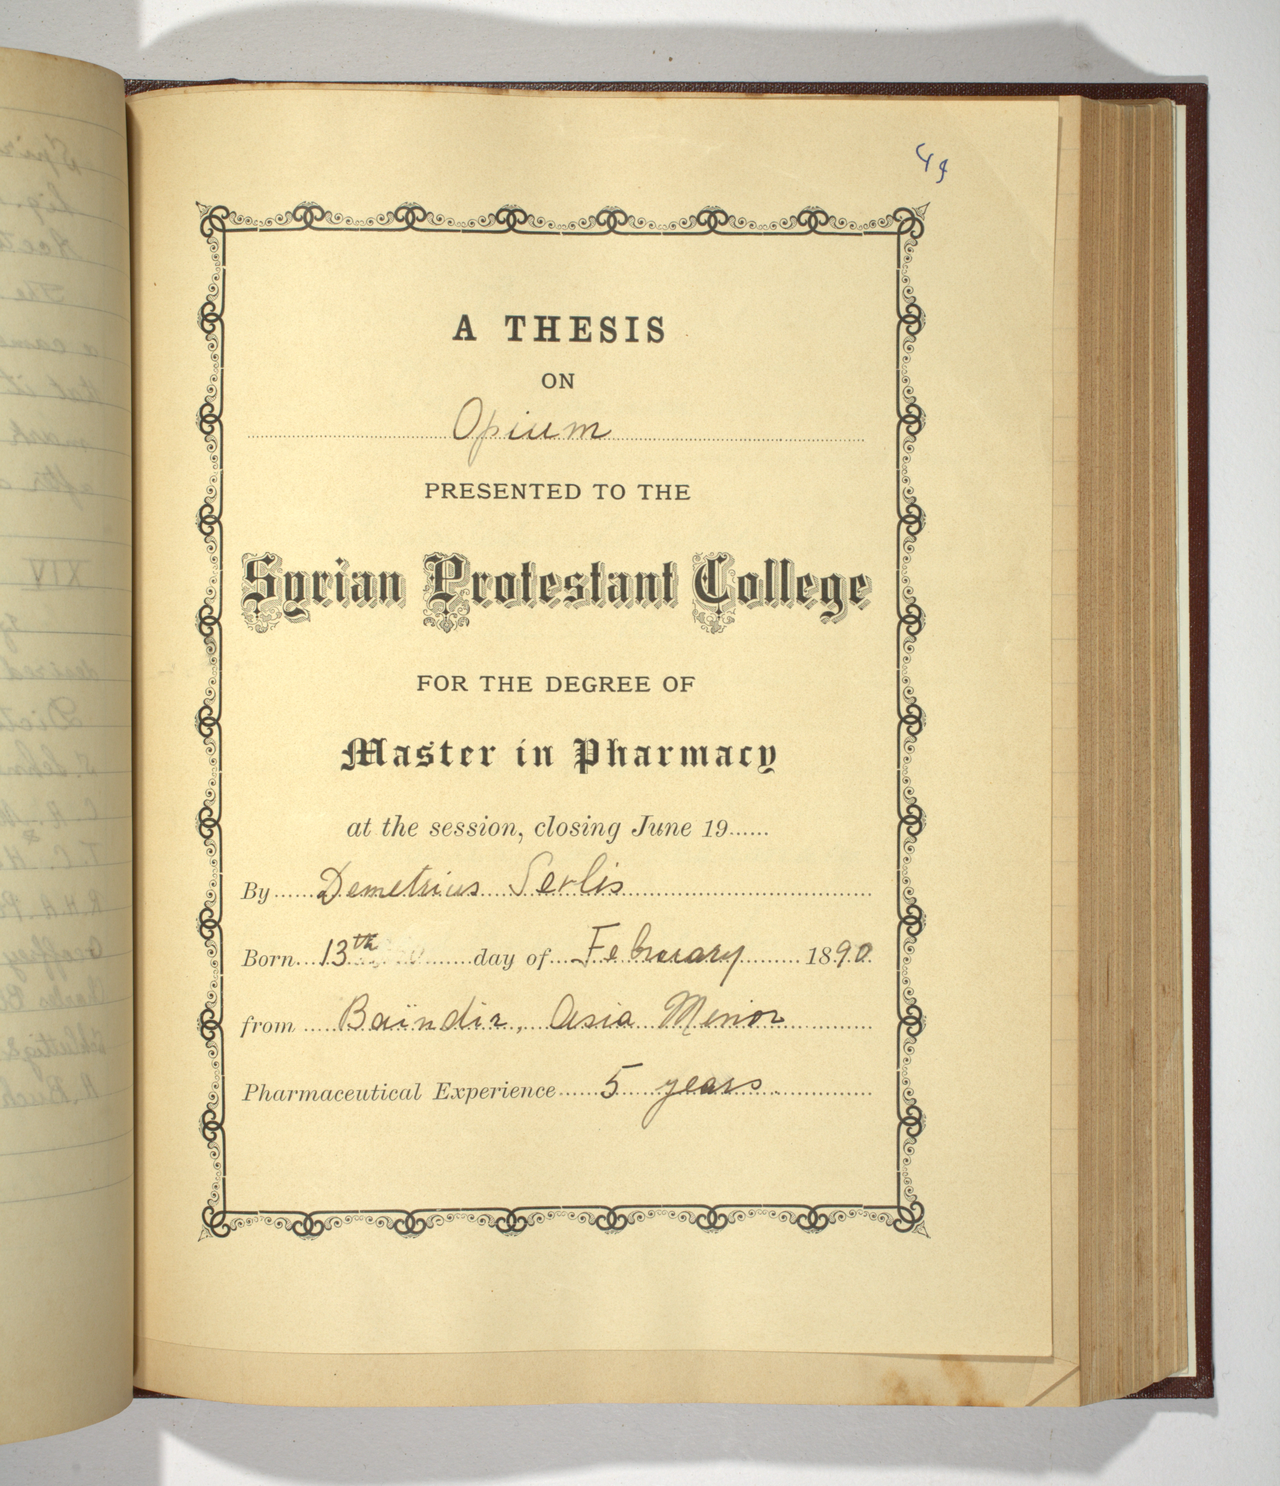 49
A THESIS
ON
Opium
PRESENTED TO THE
Syrian Protestant College
FOR THE DEGREE OF
Master in Pharmacy
at the session, closing June 19......
By Demetrius Serlis
Born 13th day of February 1890
from Baïndir, Asia Minor
Pharmaceutical Experience 5 years